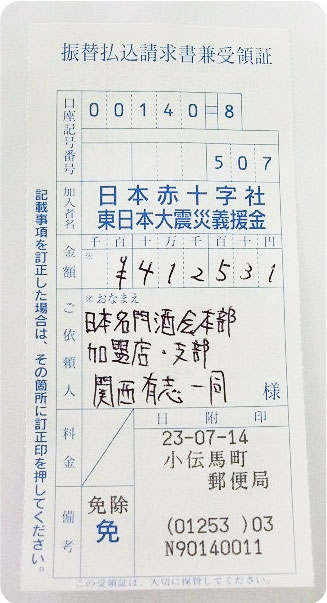 振替払込請求書兼受領証
口座記号番号
00140=8
507
加入者名
日本赤十字社
東日本大震災義援金
金額
千百十万千百十円
※
¥412531
ご依頼人
※おなまえ
日本名門酒会本部
加盟店・支部
関西有志一同
様
料金
日附印
23-07-14
小伝馬町
郵便局
(01253 )03
N90140011
備考
免除
免
この受領証は、大切に保管してください。
記載事項を訂正した場合は、その箇所に訂正印を押してください。